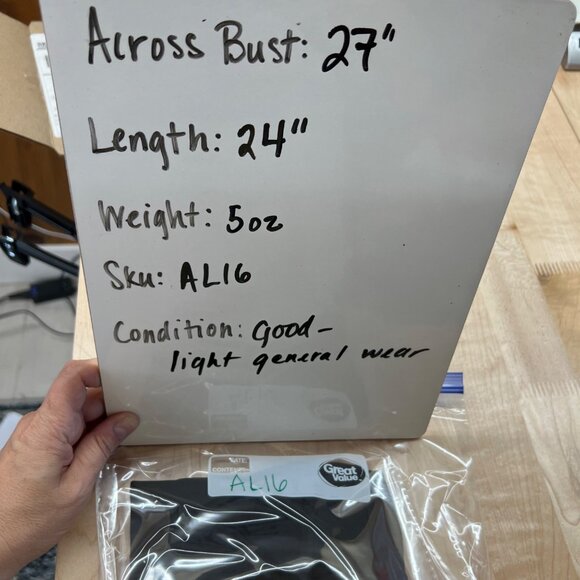 Across Bust: 27"
Length: 24"
Weight: 5oz
Sku: AL16
Condition: Good-
light general wear
DATE
CONTENTS
Great Value
AL16